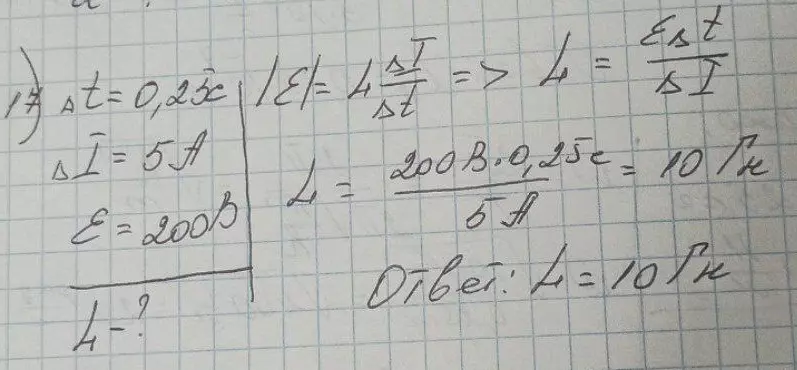 17) Δt = 0,25c
ΔI = 5A
ℰ = 200B
L - ?
|ℰ| = L ΔI/Δt => L = ℰΔt/ΔI
L = 200B·0,25c/5A = 10 Гн
Ответ: L = 10 Гн